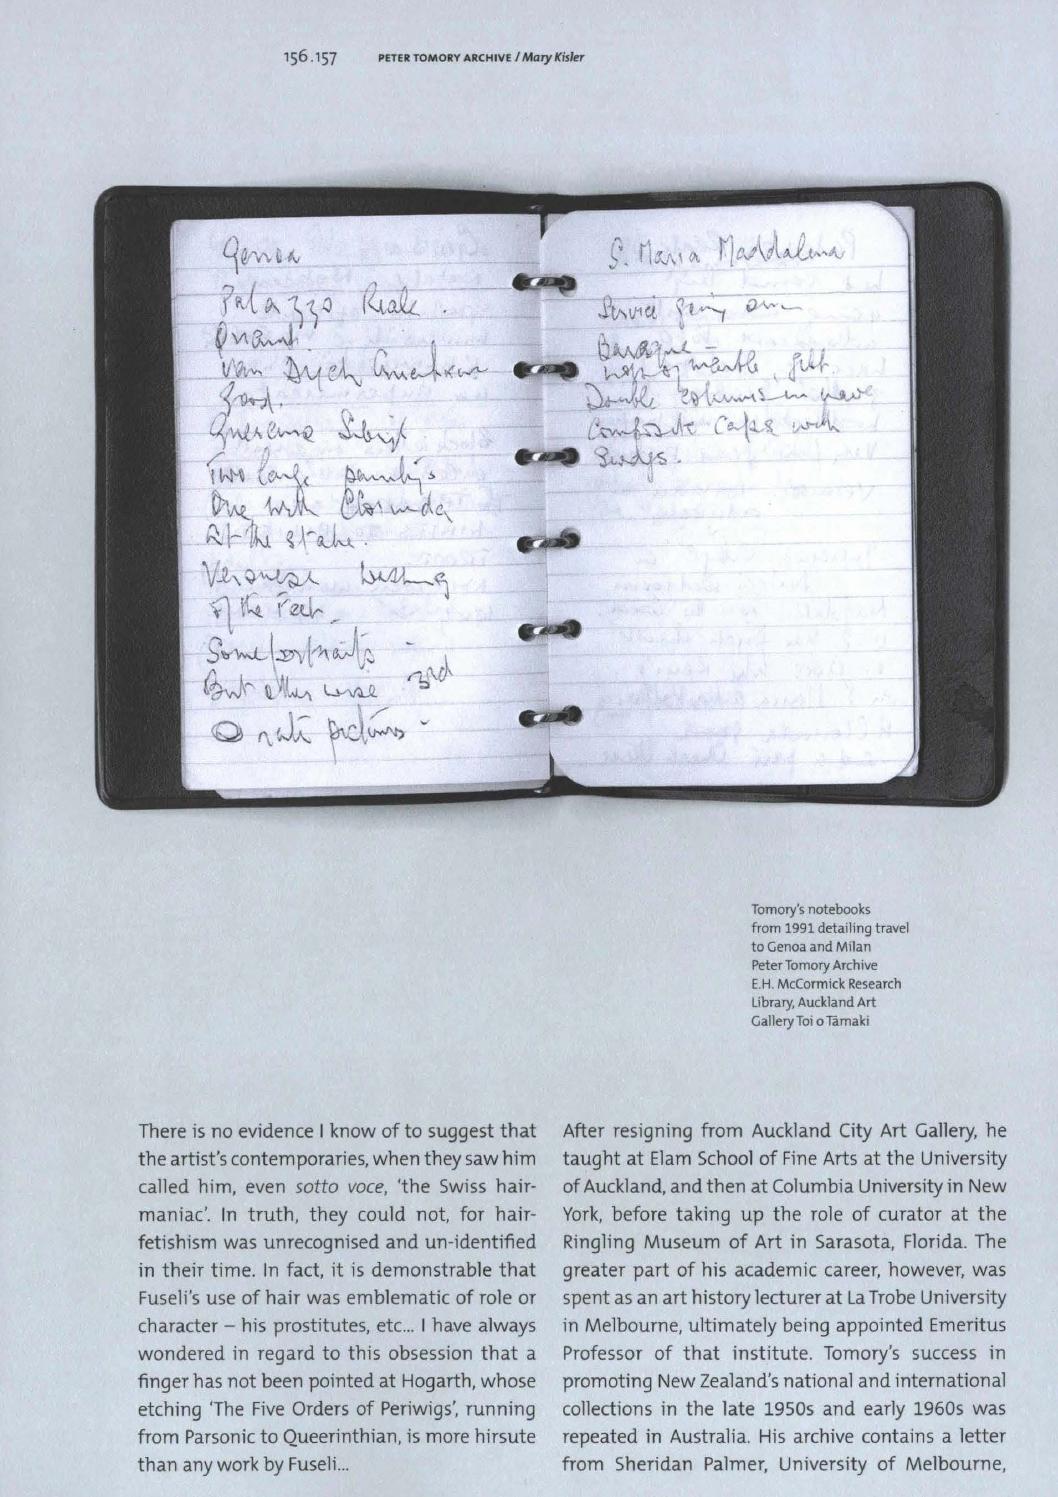 156.157 PETER TOMORY ARCHIVE / Mary Kisler
Genoa
Palazzo Reale.
van Dyck
Good.
Two large
One with Clorinda
At the stake.
Veronese
of the Feet
Some portraits -
But otherwise 3rd
rate pictures -
S. Maria Maddalena
Service going on
Baroque -
of marble, gilt.
Double columns in nave
Composite Caps with
Swags.
Tomory's notebooks
from 1991 detailing travel
to Genoa and Milan
Peter Tomory Archive
E.H. McCormick Research
Library, Auckland Art
Gallery Toi o Tāmaki
There is no evidence I know of to suggest that
the artist's contemporaries, when they saw him
called him, even sotto voce, 'the Swiss hair-
maniac'. In truth, they could not, for hair-
fetishism was unrecognised and un-identified
in their time. In fact, it is demonstrable that
Fuseli's use of hair was emblematic of role or
character – his prostitutes, etc... I have always
wondered in regard to this obsession that a
finger has not been pointed at Hogarth, whose
etching 'The Five Orders of Periwigs', running
from Parsonic to Queerinthian, is more hirsute
than any work by Fuseli...
After resigning from Auckland City Art Gallery, he
taught at Elam School of Fine Arts at the University
of Auckland, and then at Columbia University in New
York, before taking up the role of curator at the
Ringling Museum of Art in Sarasota, Florida. The
greater part of his academic career, however, was
spent as an art history lecturer at La Trobe University
in Melbourne, ultimately being appointed Emeritus
Professor of that institute. Tomory's success in
promoting New Zealand's national and international
collections in the late 1950s and early 1960s was
repeated in Australia. His archive contains a letter
from Sheridan Palmer, University of Melbourne,